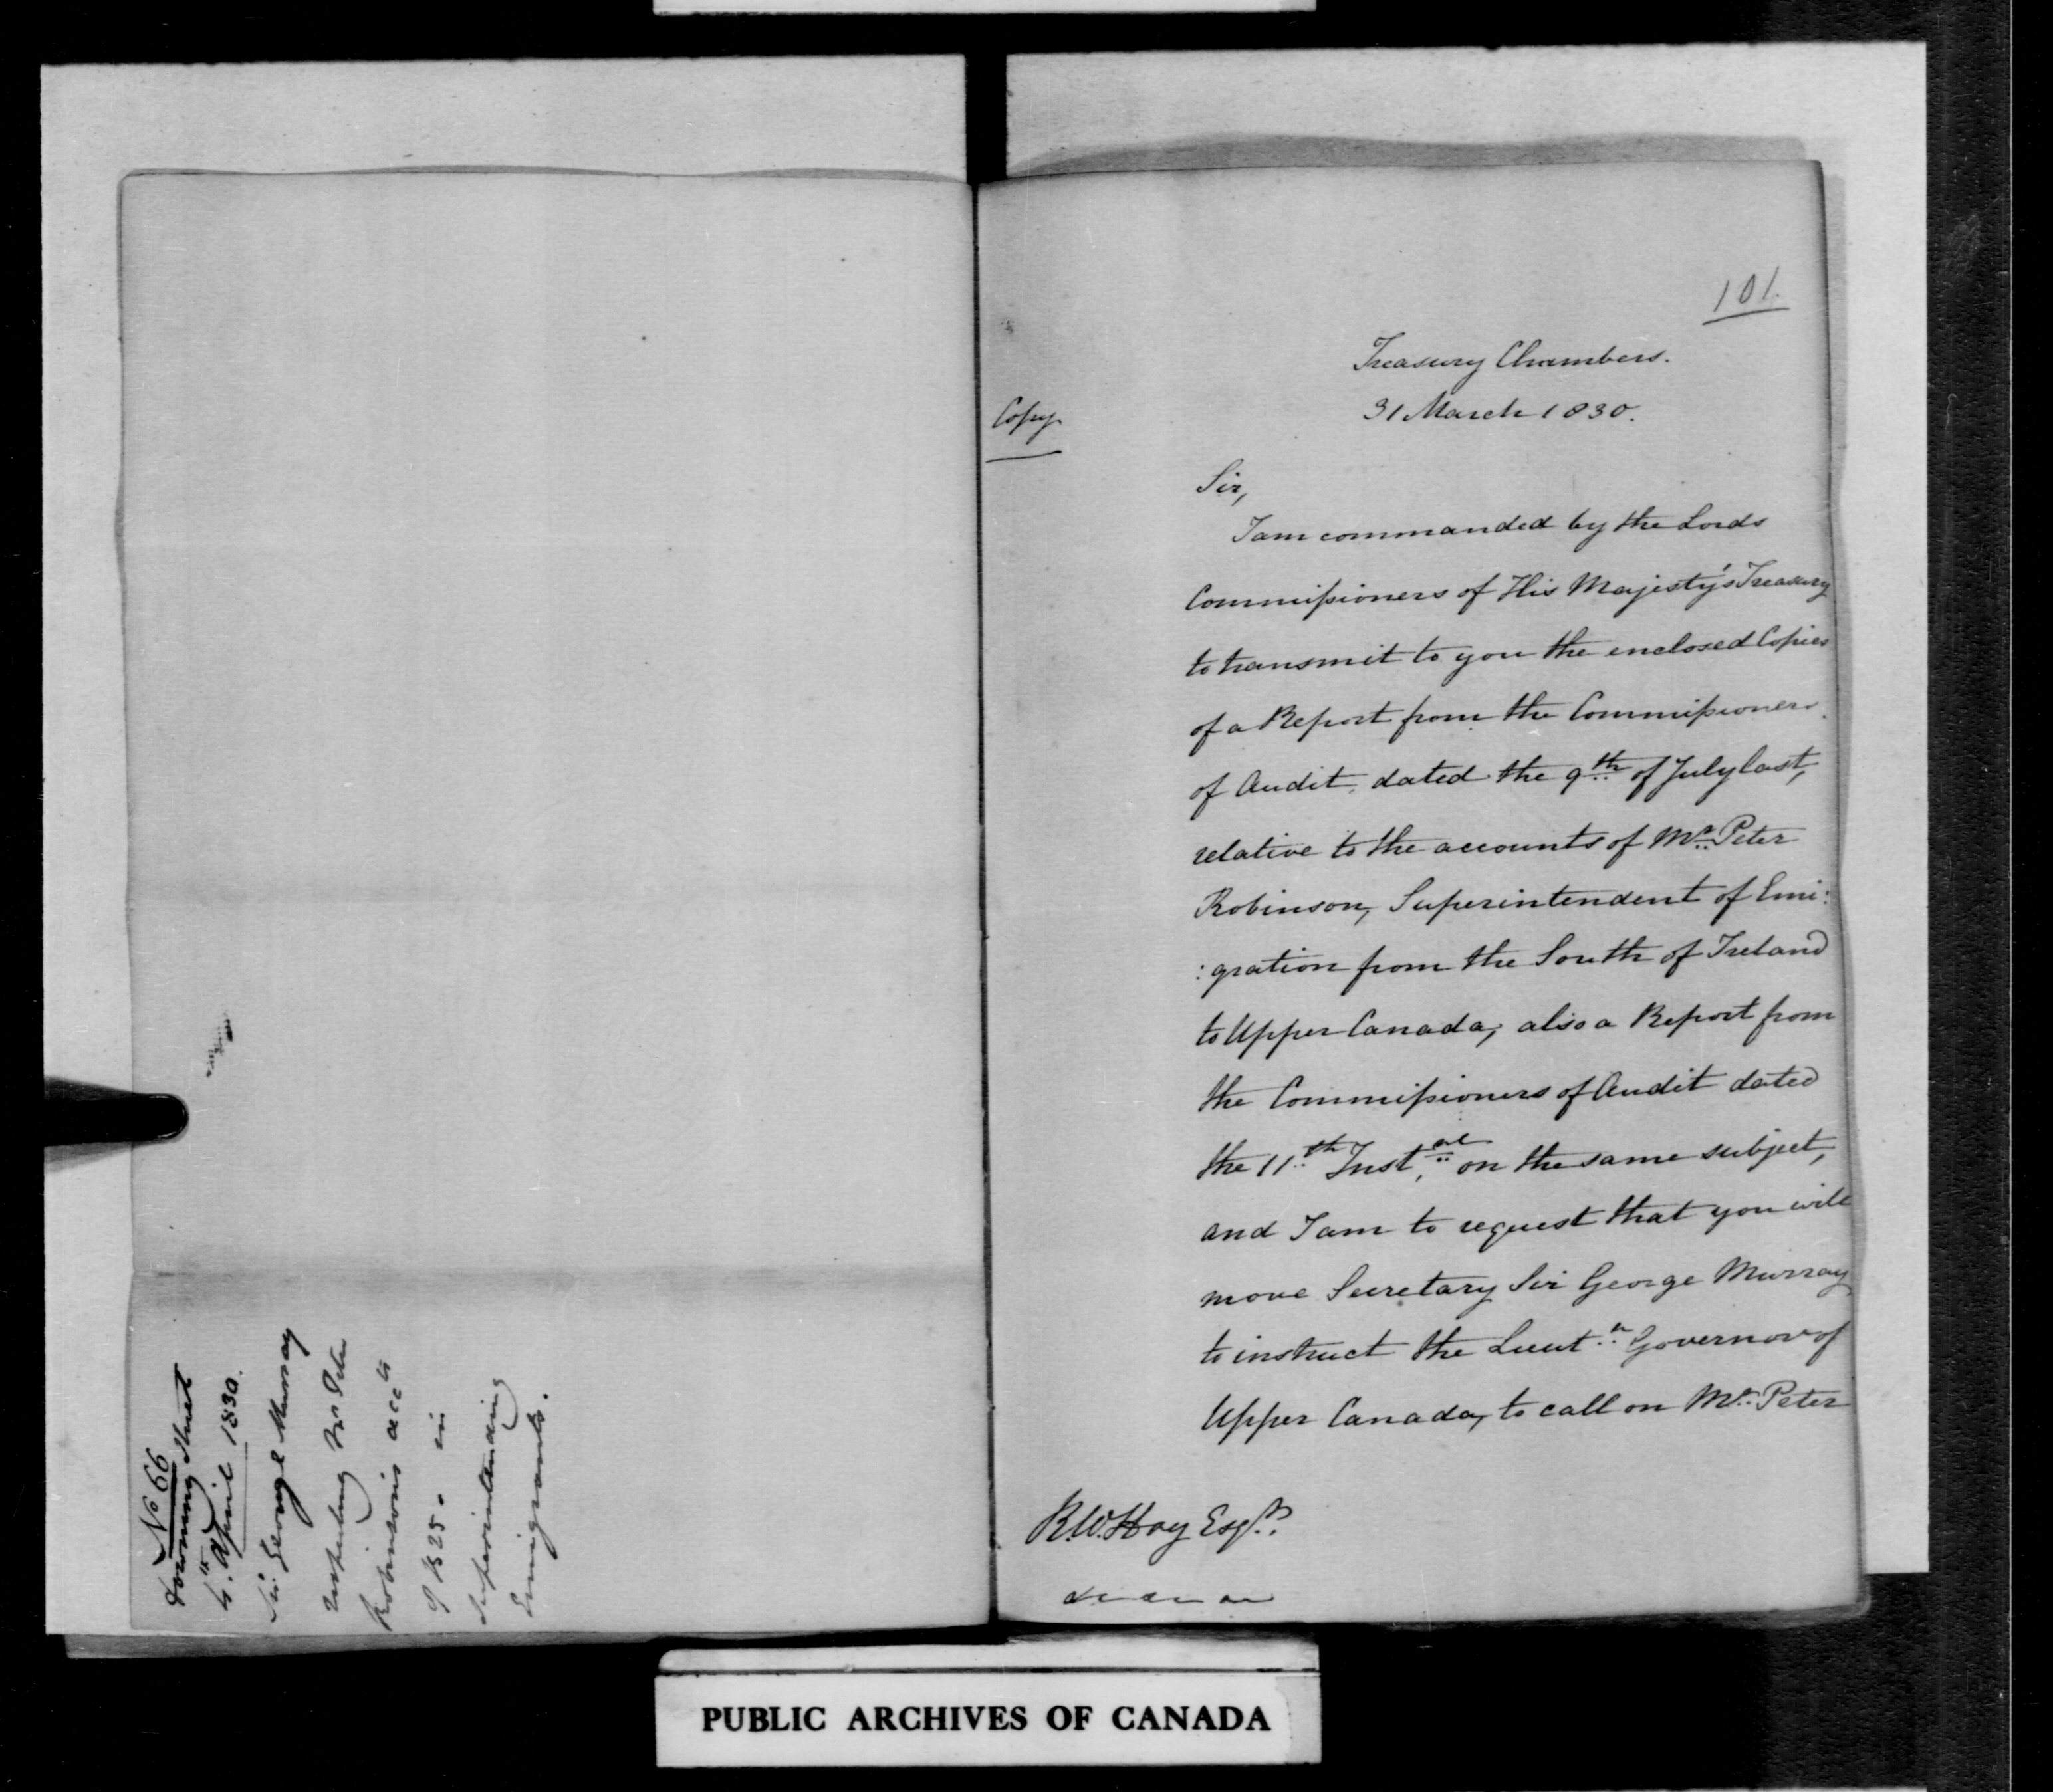 No 66
Downing Street
4th April 1830.
Sir George Murray
respecting Mr Peter
Robinson's accts
of 1825. in
superintending
Emigrants.
101.
Treasury Chambers.
31 March 1830.
Copy
Sir,
I am commanded by the Lords
Commissioners of His Majesty's Treasury
to transmit to you the enclosed Copies
of a Report from the Commissioners
of Audit, dated the 9th of July last,
relative to the accounts of Mr Peter
Robinson, Superintendent of Emi:
:gration from the South of Ireland
to Upper Canada; also a Report from
the Commissioners of Audit dated
the 11th Inst, on the same subject,
and I am to request that you will
move Secretary Sir George Murray
to instruct the Lieut Governor of
Upper Canada, to call on Mr Peter
R.W. Hay Esqr.
PUBLIC ARCHIVES OF CANADA